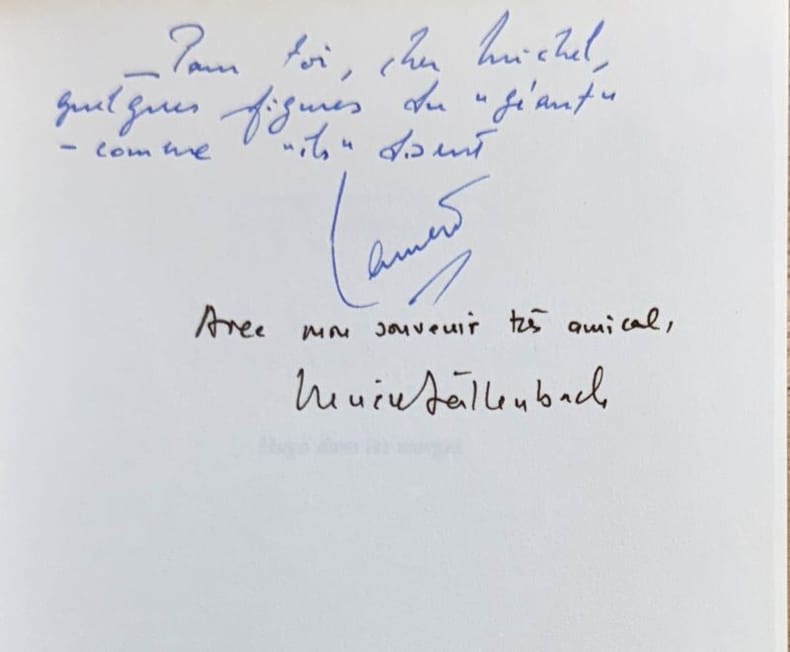 – Pour toi, cher Michel,
quelques figures du "géant"
– comme "ils" disent
Laurent
Avec mon souvenir très amical,
Dällenbach
Hugo dans les marges